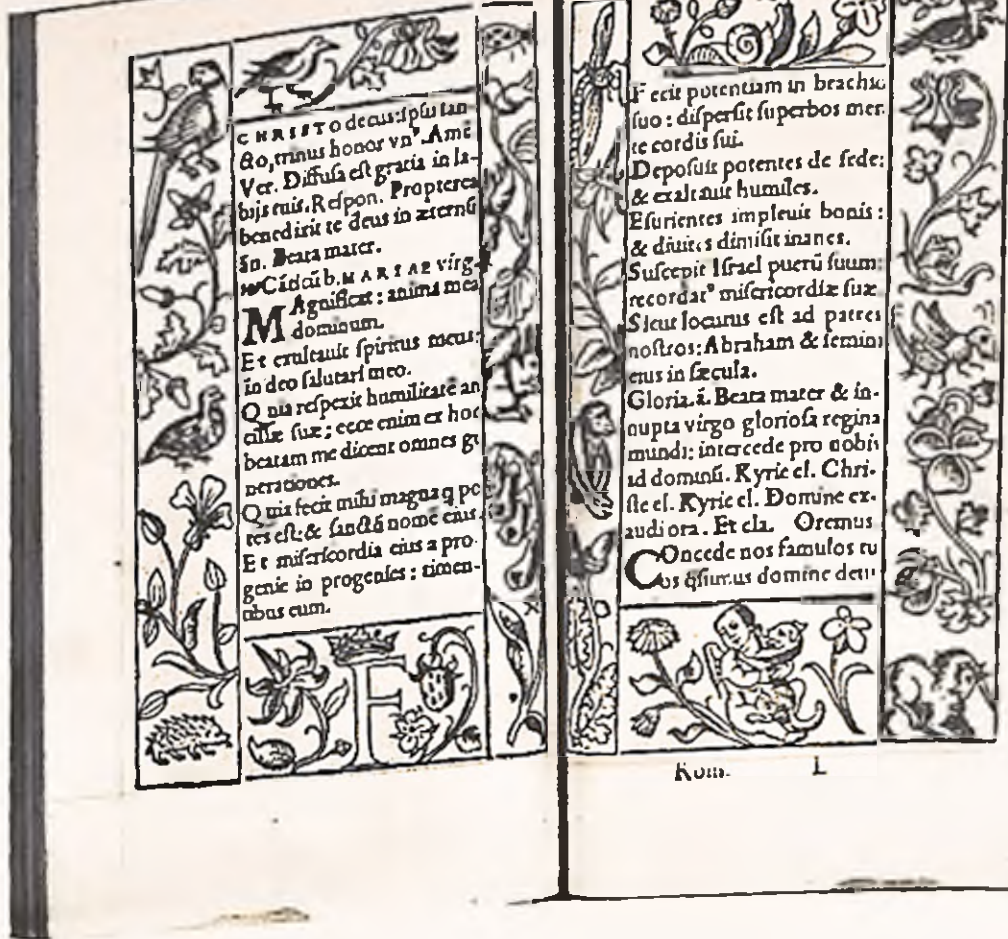 CHRISTO decus: ipſis ſan
cto, trinus honor vnꝰ. Amē
Ver. Diffuſa eſt gratia in la-
bijs tuis. Reſpon. Propterea
benedixit te deus in æternū
Ān. Beata mater.
Cāticū b. MARIAE virg.
MAgnificat: anima mea
dominum.
Et exultauit ſpiritus meus:
in deo ſalutari meo.
Quia reſpexit humilitatē an
cillæ ſuæ; ecce enim ex hoc
beatam me dicent omnes ge
nerationes.
Quia fecit mihi magna q po
tes eſt: & ſanctū nomē eius.
Et miſericordia eius a pro-
genie in progenies: timen-
tibus eum.
F
Fecit potentiam in brachio
ſuo: diſperſit ſuperbos men
te cordis ſui.
Depoſuit potentes de ſede:
& exaltauit humiles.
Eſurientes impleuit bonis:
& diuites dimiſit inanes.
Suſcepit Iſrael puerū ſuum:
recordatꝰ miſericordiæ ſuæ
Sicut locutus eſt ad patres
noſtros: Abraham & ſemini
eius in ſæcula.
Gloria. ā. Beata mater & in-
nupta virgo glorioſa regina
mundi: intercede pro nobis
ad dominū. Kyrie el. Chri-
ſte el. Kyrie el. Domine ex-
audi ora. Et cla. Oremus
COncede nos famulos tu
os q̄ſumus domine deus
Rom. L